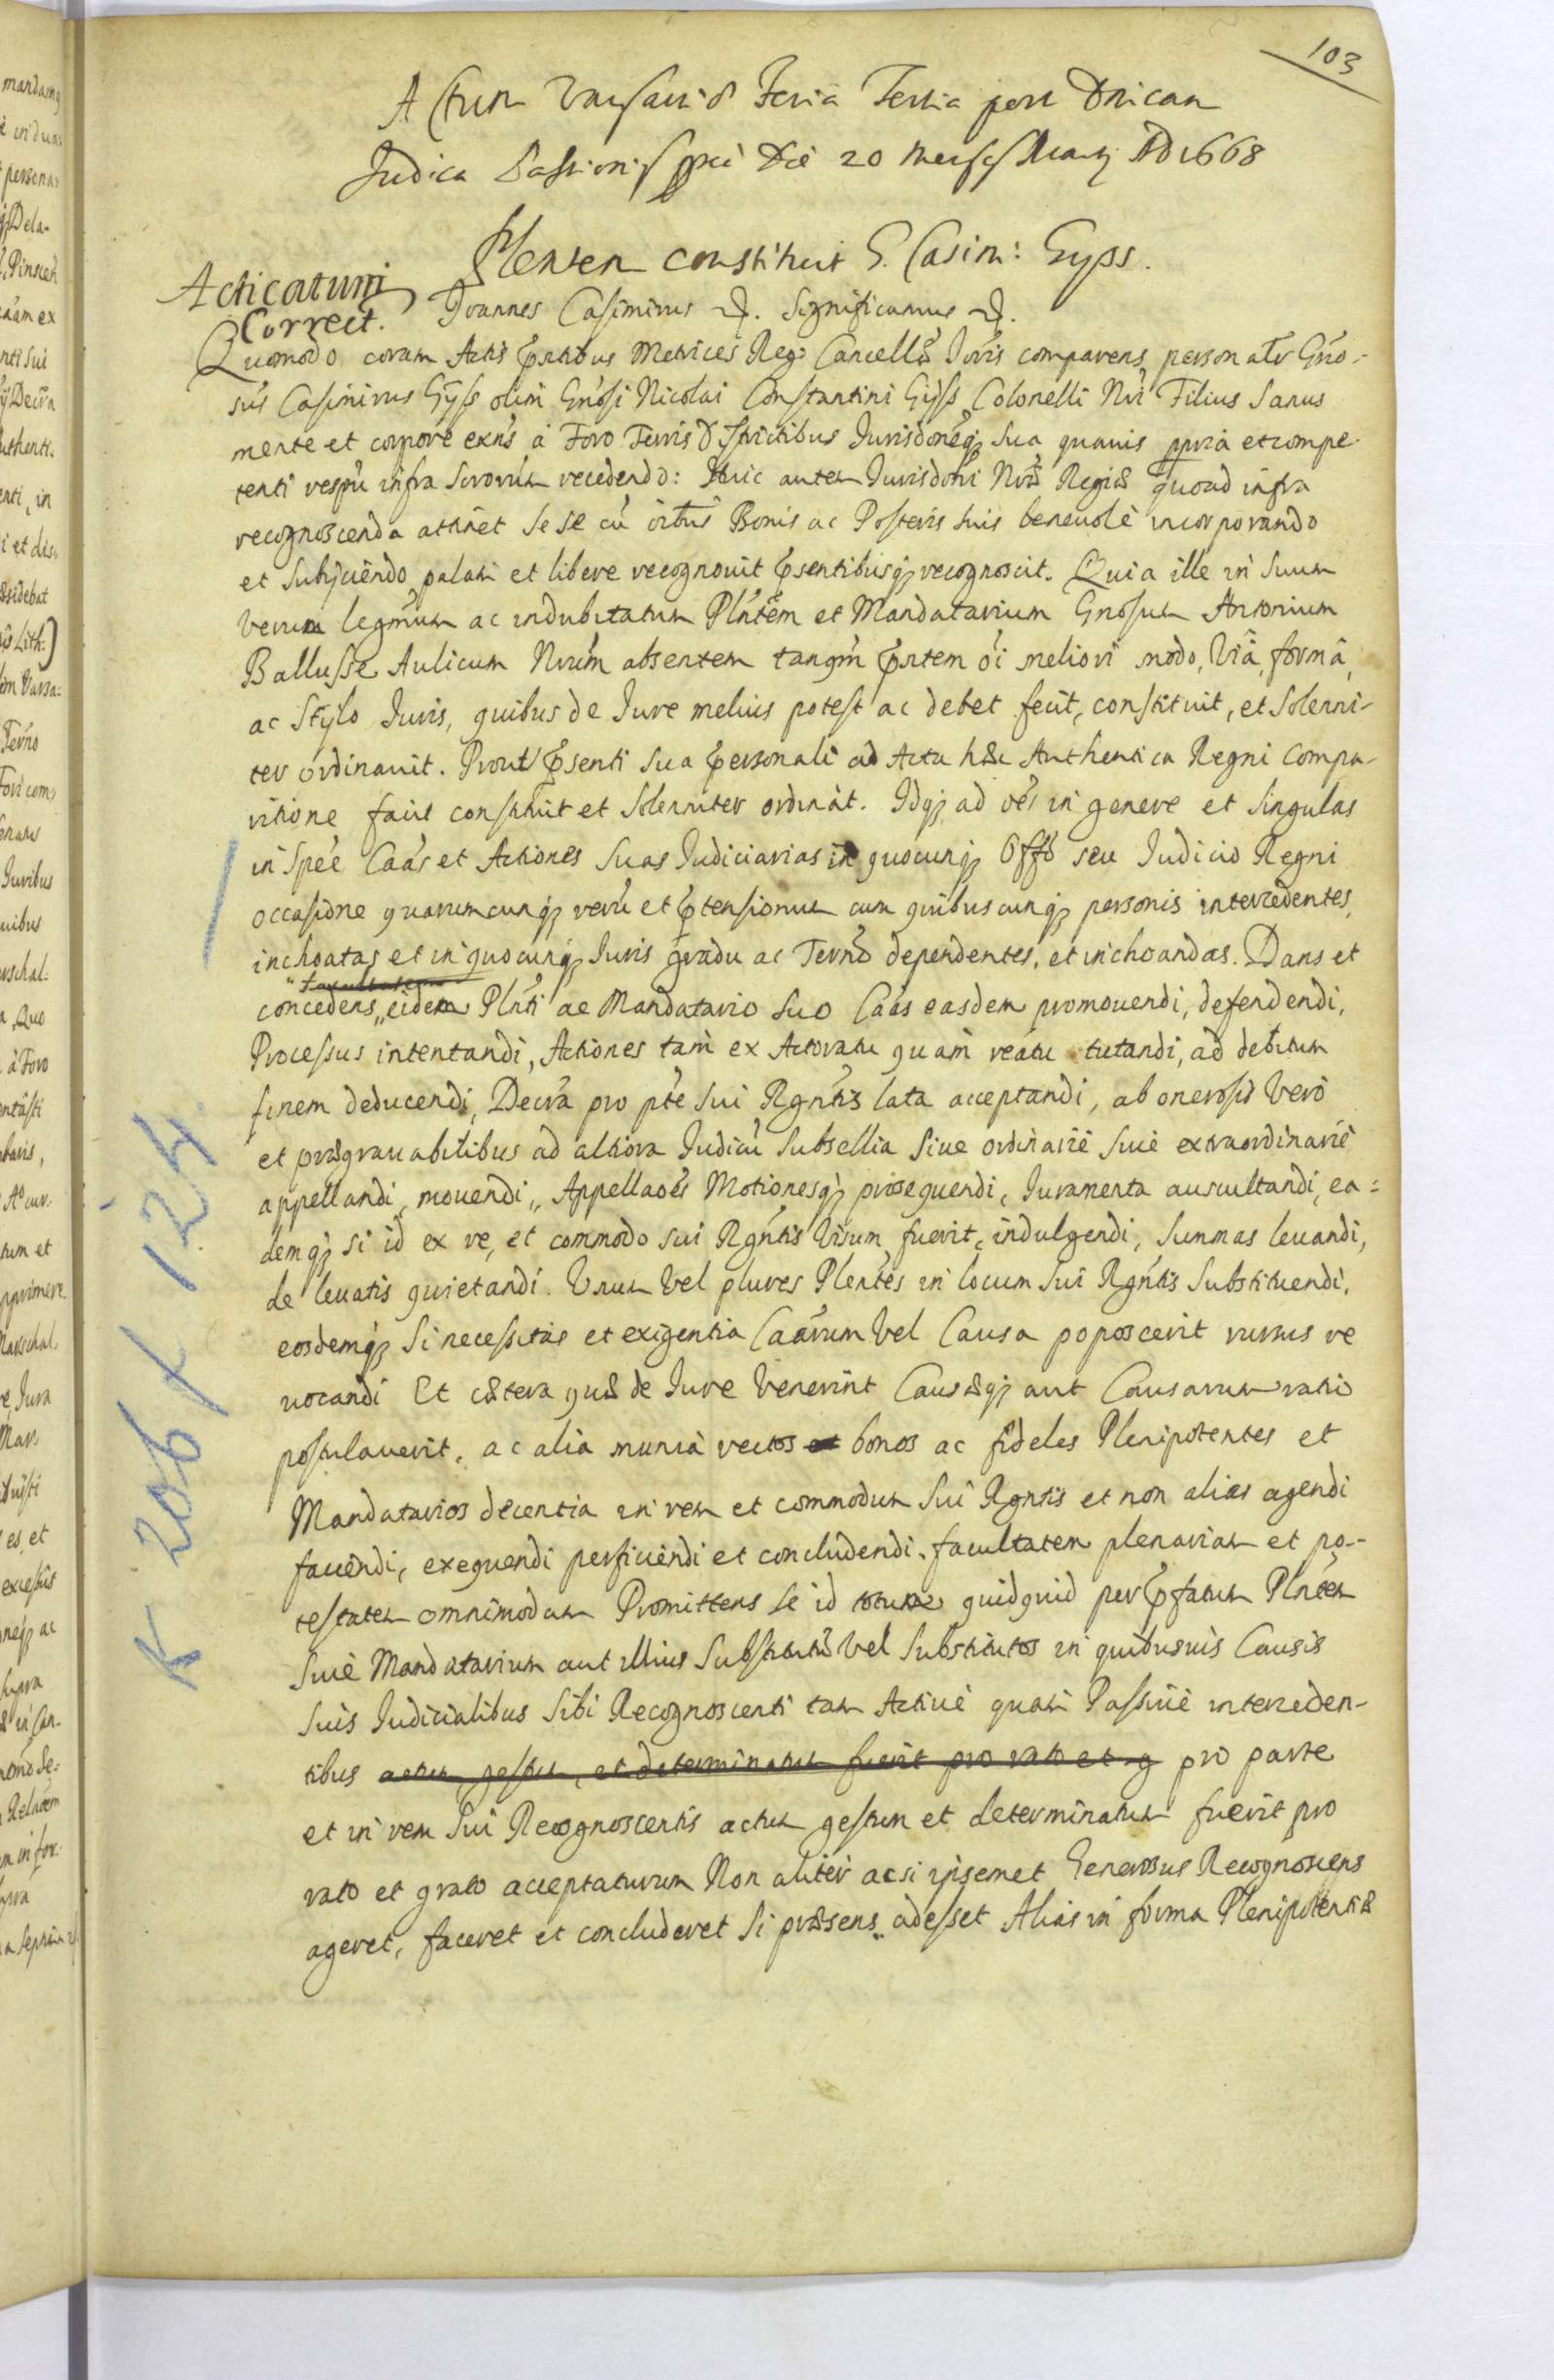 103
Actum Varsaviæ Feria Tertia post Dnicam
Judica Passionis Die 20 Mensis Martÿ AD 1668
Plenten constituit G. Casim: Gyss.
Acticatum
Correct.
Joannes Casimirus &. Significamus &.
Quomodo coram Actis pntibus Metrices Reg: Cancellæ Juris comparens personalr Gno-
sus Casimirus Gÿss olim Gnosi Nicolai Constantini Gÿss Colonelli Nri Filius Sanus
mente et corpore exns à Foro Terris Districtibus Jurisdoneq sua quavis ppria et compe-
tenti respu infra recedendo: Huic autem Jurisdoni Nræ Regiæ quoad infra
recognoscenda attinet se se cũ oibus Bonis ac Posteris suis benevolè incorporando
et Subÿciendo, palam et libere recognovit psentibusq recognoscit. Quia ille in Suum
verum legmum ac indubitatum Plntem et Mandatarium Gnosum Antonium
Ballusse Aulicum Nrum absentem tanqm pntem oi meliori modo, Viâ, formâ,
ac Stÿlo Juris, quibus de Jure melius potest ac debet fecit, constituit, et Solenni-
ter ordinavit. Prout psenti sua personali ad Acta hæc Authentica Regni Compa-
ritione facit constituit et Solenniter ordinat. Idq ad oes in genere et Singulas
in Spee Caas et Actiones Suas Judiciarias in quocunq Offo seu Judicio Regni
occasione quarumcunq rerũ et ptensionum cum quibuscunq personis intercedentes,
inchoatas et in quocunq Juris gradu ac Termo dependentes, et inchoandas. Dans et
facultatem
concedens „eidem Plnti ac Mandatario Suo Caas easdem promovendi, defendendi,
Processus intentandi, Actiones tam ex Actoratu quàm reatu tutandi, ad debitum
finem deducendi, Decra pro pte sui Rgntis lata acceptandi, ab onerosis Verò
et prægravabilibus ad altiora Judicũ Subsellia Sive ordinariè Sivè extraordinariè
appellandi, movendi„ Appellaoes Motionesq prosequendi, Juramenta auscultandi, ea=
demq si id ex re, et commodo sui Rgntis Visum fuerit, indulgendi, Summas levandi,
de levatis quietandi. Unum Vel plures Plentes in locum Sui Rgntis Substituendi,
eosdemq Si necessitas et exigentia Caarum Vel Causa poposcerit rursus re
vocandi Et cætera quæ de Jure Venerint Causæq aut Causarum ratio
postulaverit, ac alia munia rectos et bonos ac fideles Plenipotentes et
Mandatarios decentia in rem et commodum Sui Rgntis et non alias agendi
faciendi, exequendi perficiendi et concludendi, facultatem plenariam et po-
testatem omnimodam Promittens Se id totum quidquid per pfatum Plntem
Sivè Mandatarium aut illius Substitutũ Vel Substitutos in quibusvis Causis
Suis Judicialibus Sibi Recognoscenti tam Activè quam Passivè interceden-
tibus actum gestum, et determinatum fuerit pro rato et g pro parte
et in rem Sui Recognoscentis actum gestum et determinatum fuerit pro
rato et grato accepturum Non aliter acsi ipsemet Generosus Recognoscens
ageret, faceret et concluderet Si præsens„ adesset Alias in forma Plenipotentiæ
K 206 / 124